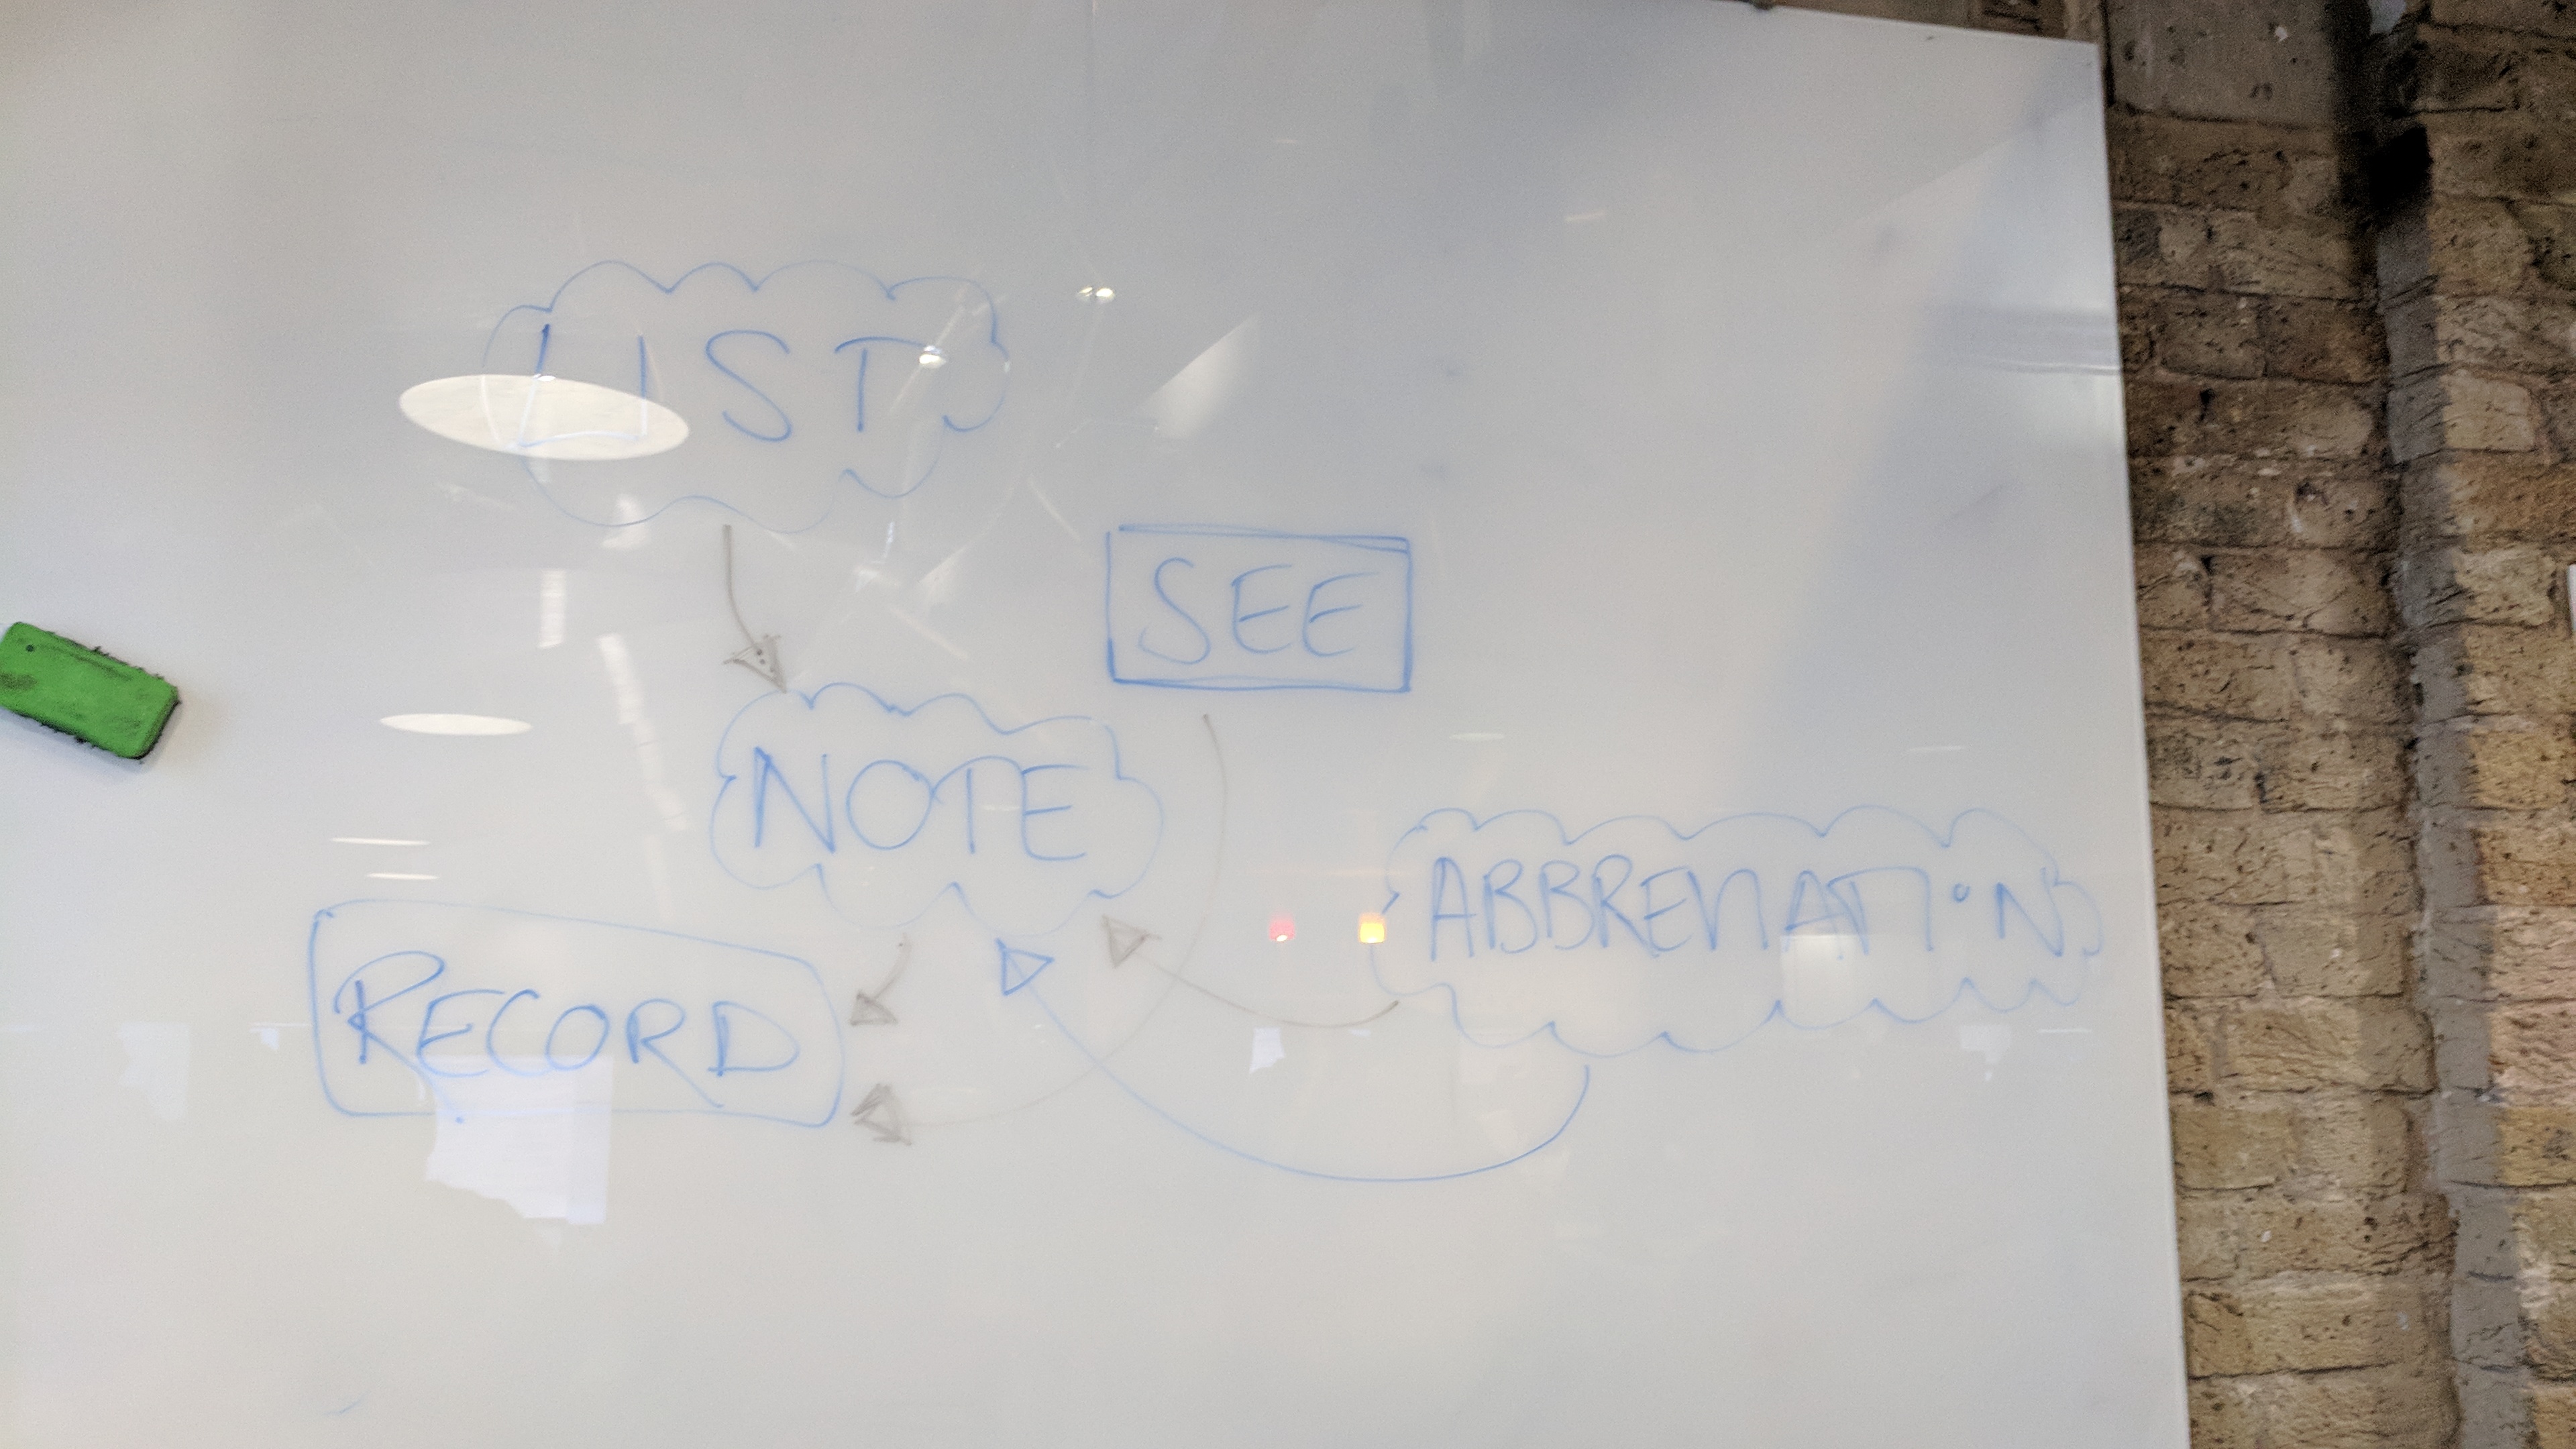 LIST
SEE
NOTE
ABBREVIATIONS
RECORD